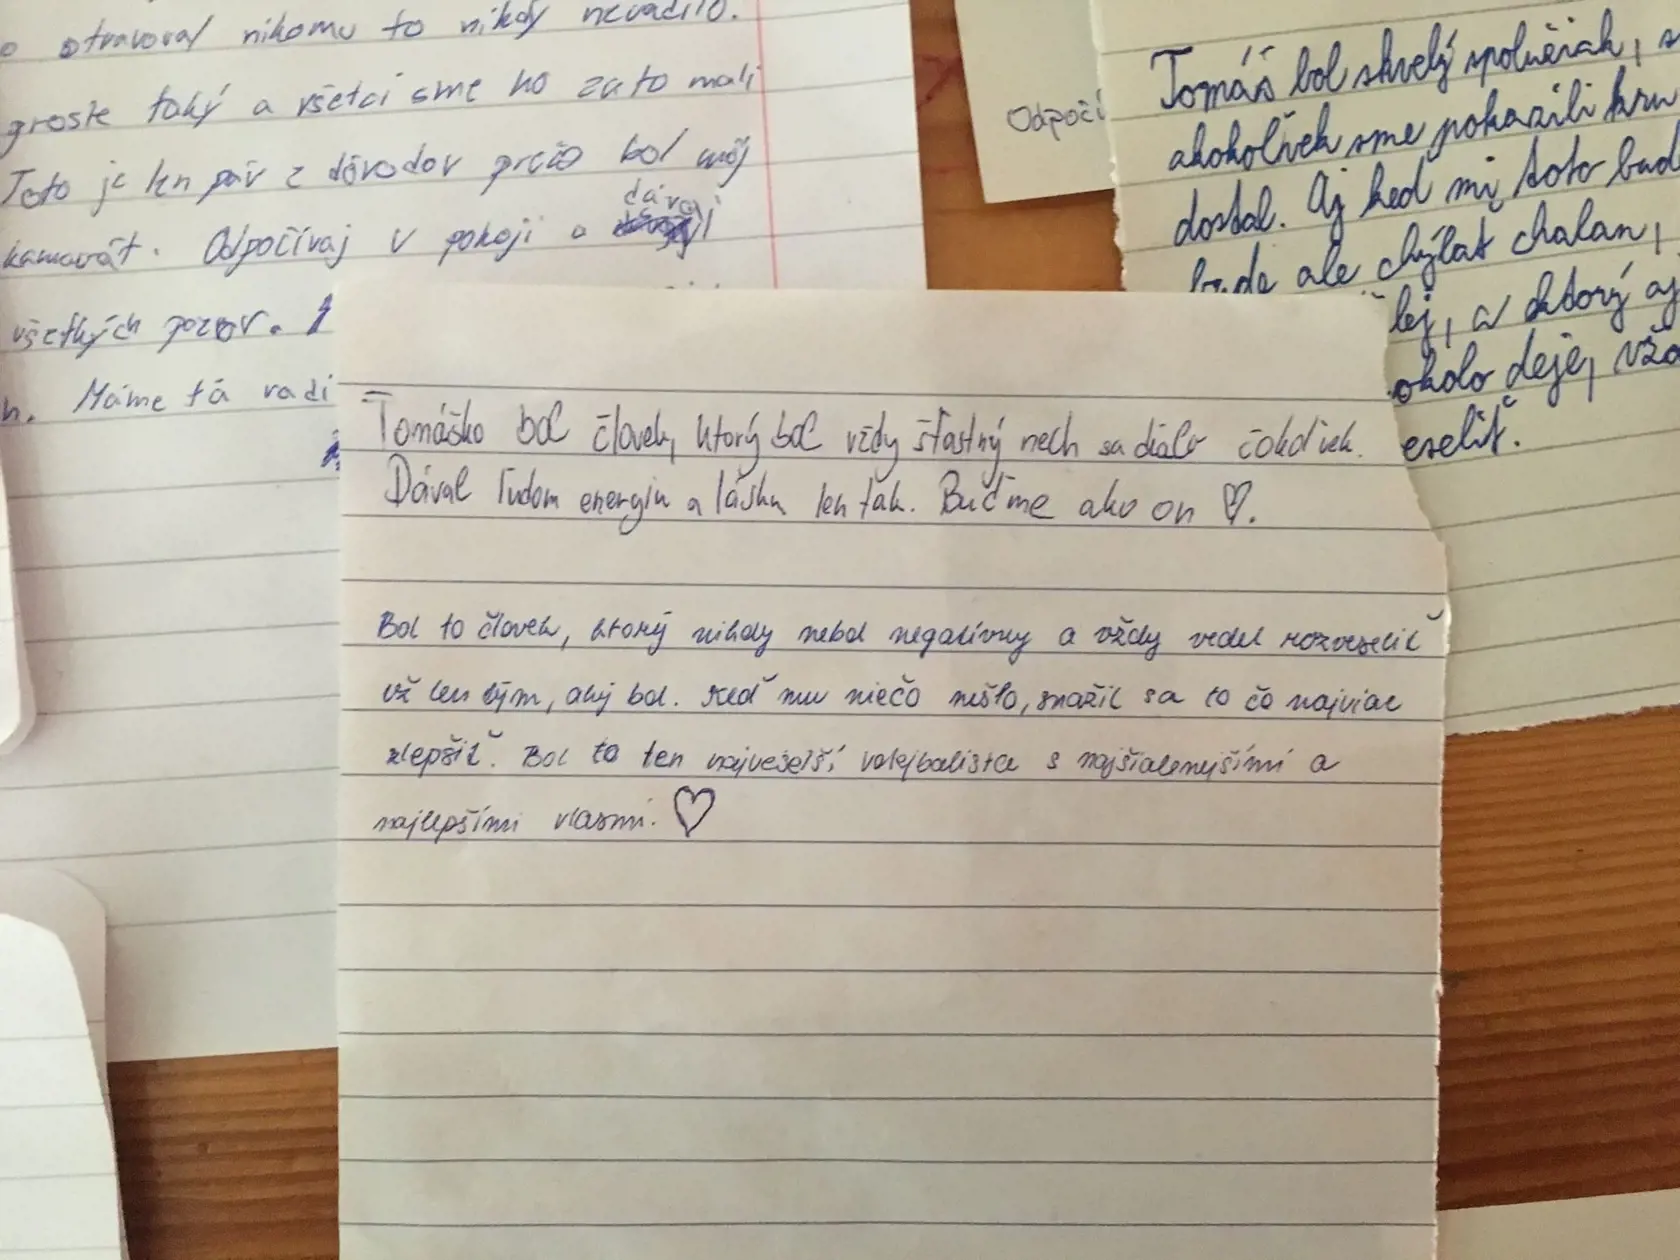 otravoval nikomu to nikdy nevadilo.
proste taký a všetci sme ho zato mali
Toto je len pár z dôvodov prečo bol môj
kamarát. Odpočívaj v pokoji a dávaj
všetkých pozor.
Máme ťa radi
Odpočí
Tomáš bol skvelý spolužiak, s
akokoľvek sme pokazili
dostal. Aj keď mi toto bud
bude ale chýbať chalan,
lej, a ktorý aj
okolo deje, vžd
eseliť.
Tomáško bol človek, ktorý bol vždy šťastný nech sa dialo čokoľvek.
Dával ľuďom energiu a lásku len tak. Buďme ako on ♡.
Bol to človek, ktorý nikdy nebol negatívny a vždy vedel rozveseliť
už len tým, aký bol. Keď mu niečo nešlo, snažil sa to čo najviac
zlepšiť. Bol to ten najveselší volejbalista s najšialenejšími a
najlepšími vlasmi. ♡